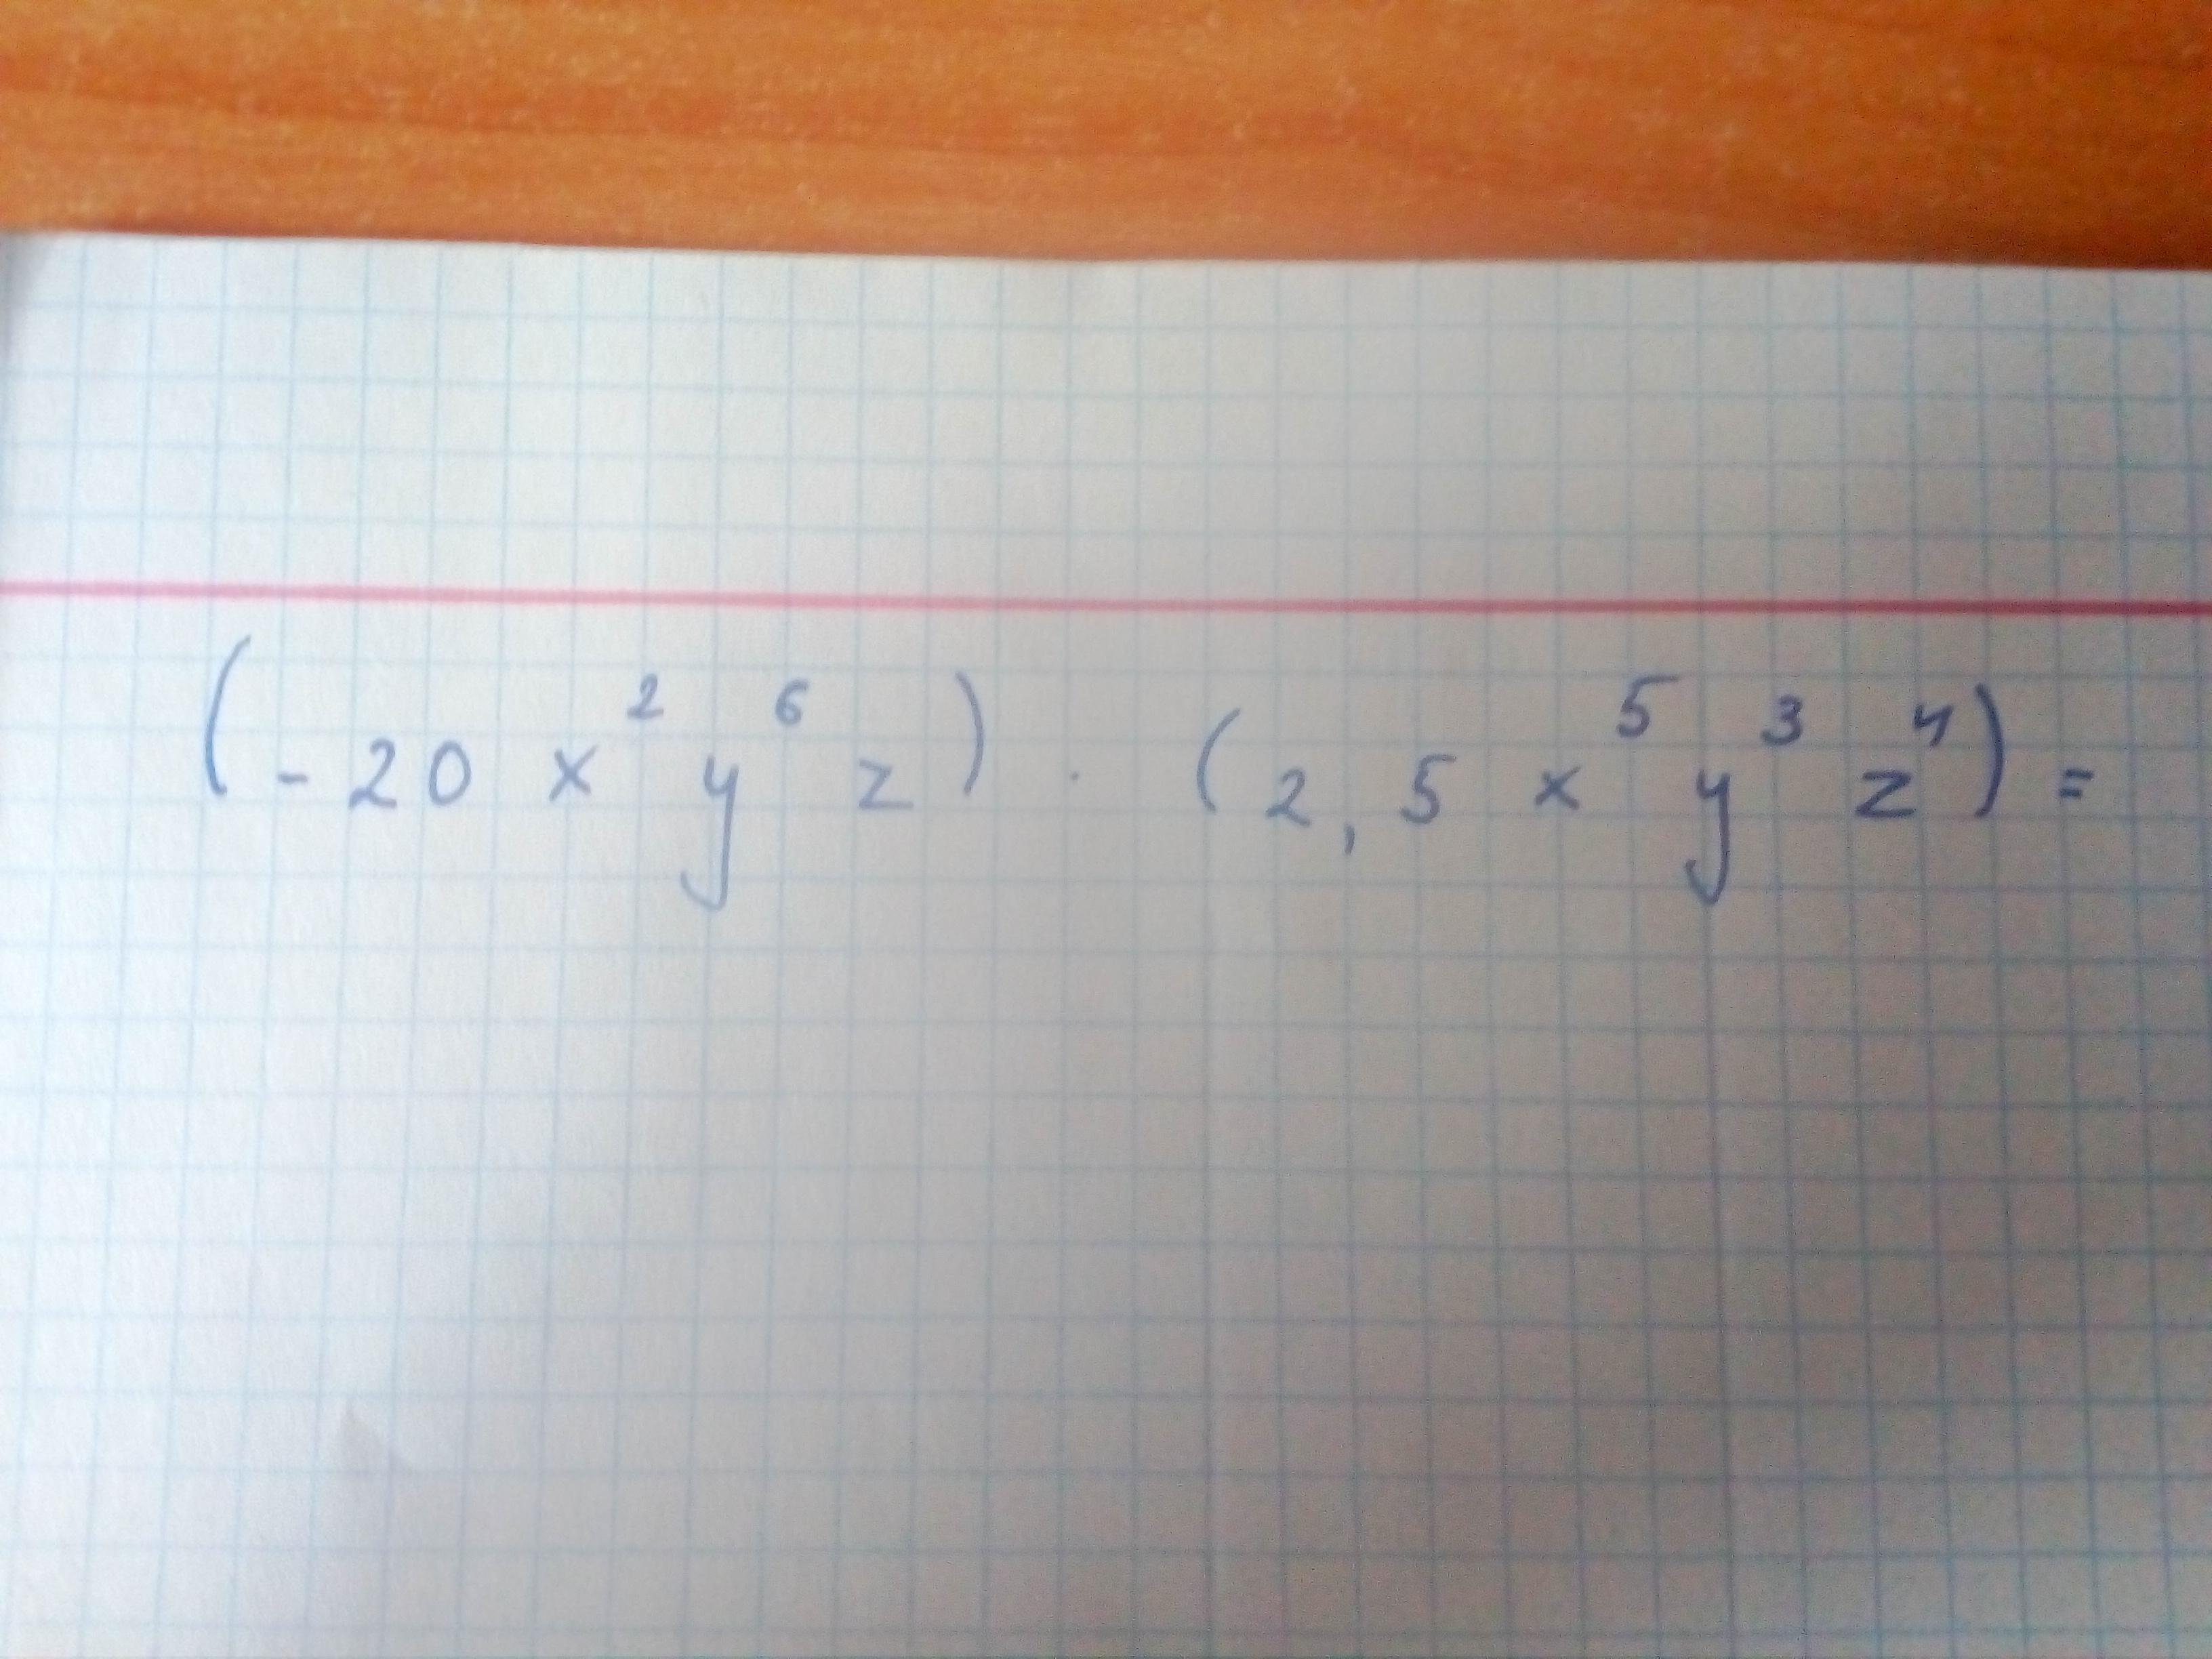 (-20 x² y⁶ z) · (2,5 x⁵ y³ z⁴) =